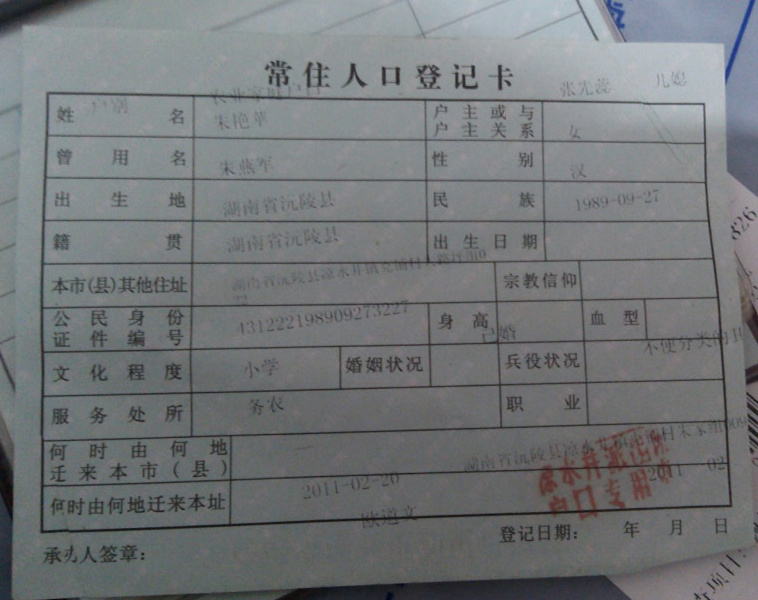 常住人口登记卡
户别 农业家庭户口 张先蕊 儿媳
姓名 朱艳苹 户主或与户主关系 女
曾用名 朱燕军 性别 汉
出生地 湖南省沅陵县 民族 1989-09-27
籍贯 湖南省沅陵县 出生日期
本市(县)其他住址 湖南省沅陵县凉水井镇 宗教信仰
公民身份证件编号 431222198909273227 身高 已婚 血型
文化程度 小学 婚姻状况 兵役状况 不便分类的
服务处所 务农 职业
何时由何地迁来本市(县) 湖南省沅陵县凉水井镇
何时由何地迁来本址 2011-02-20 2011 02
凉水井派出所
户口专用章
欧道文
登记日期: 年 月 日
承办人签章:
826